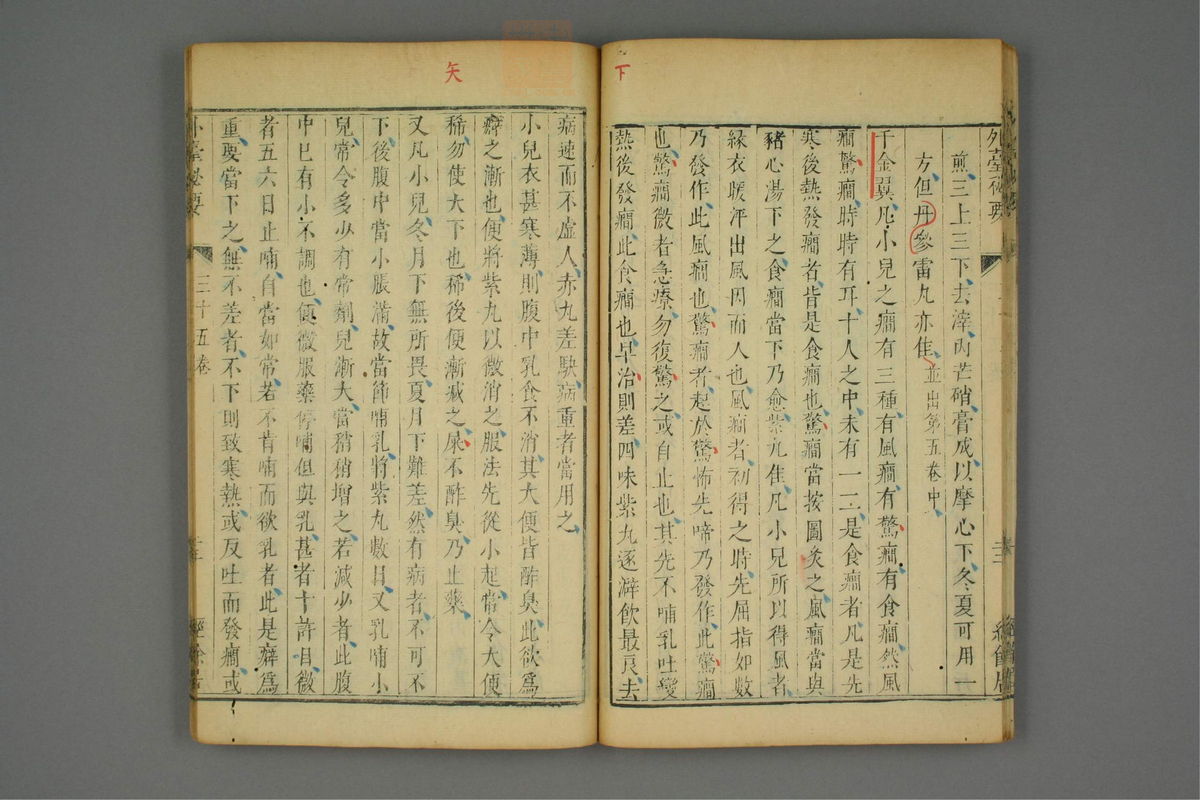 下
煎三上三下去滓內芒硝膏成以摩心下冬夏可用一
方但丹參雷丸亦佳並出第五卷中
千金翼凡小兒之癎有三種有風癎有驚癎有食癎然風
癎驚癎時時有耳十人之中未有一二是食癎者凡是先
寒後熱發癎者皆是食癎也驚癎當按圖灸之風癎當與
豬心湯下之食癎當下乃愈紫丸佳凡小兒所以得風者
緣衣暖汗出風因而入也風癎者初得之時先屈指如數
乃發作此風癎也驚癎者起於驚怖先啼乃發作此驚癎
也驚癎微者急療勿復驚之或自止也其先不哺乳吐變
熱後發癎此食癎也早治則差四味紫丸逐澼飲最良去
矢
病速而不虛人赤丸差駃病重者當用之
小兒衣甚寒薄則腹中乳食不消其大便皆酢臭此欲爲
癖之漸也便將紫丸以微消之服法先從小起常令大便
稀勿使大下也稀後便漸減之屎不酢臭乃止藥
又凡小兒冬月下無所畏夏月下難差然有病者不可不
下後腹中當小脹滿故當節哺乳將紫丸數日又乳哺小
兒常令多少有常劑兒漸大當稍稍增之若減少者此腹
中已有小不調也便微服藥停哺但與乳甚者十許日微
者五六日止哺自當如常若不肯哺而欲乳者此是癖爲
重要當下之無不差者不下則致寒熱或反吐而發癎或
外臺秘要
三十五卷